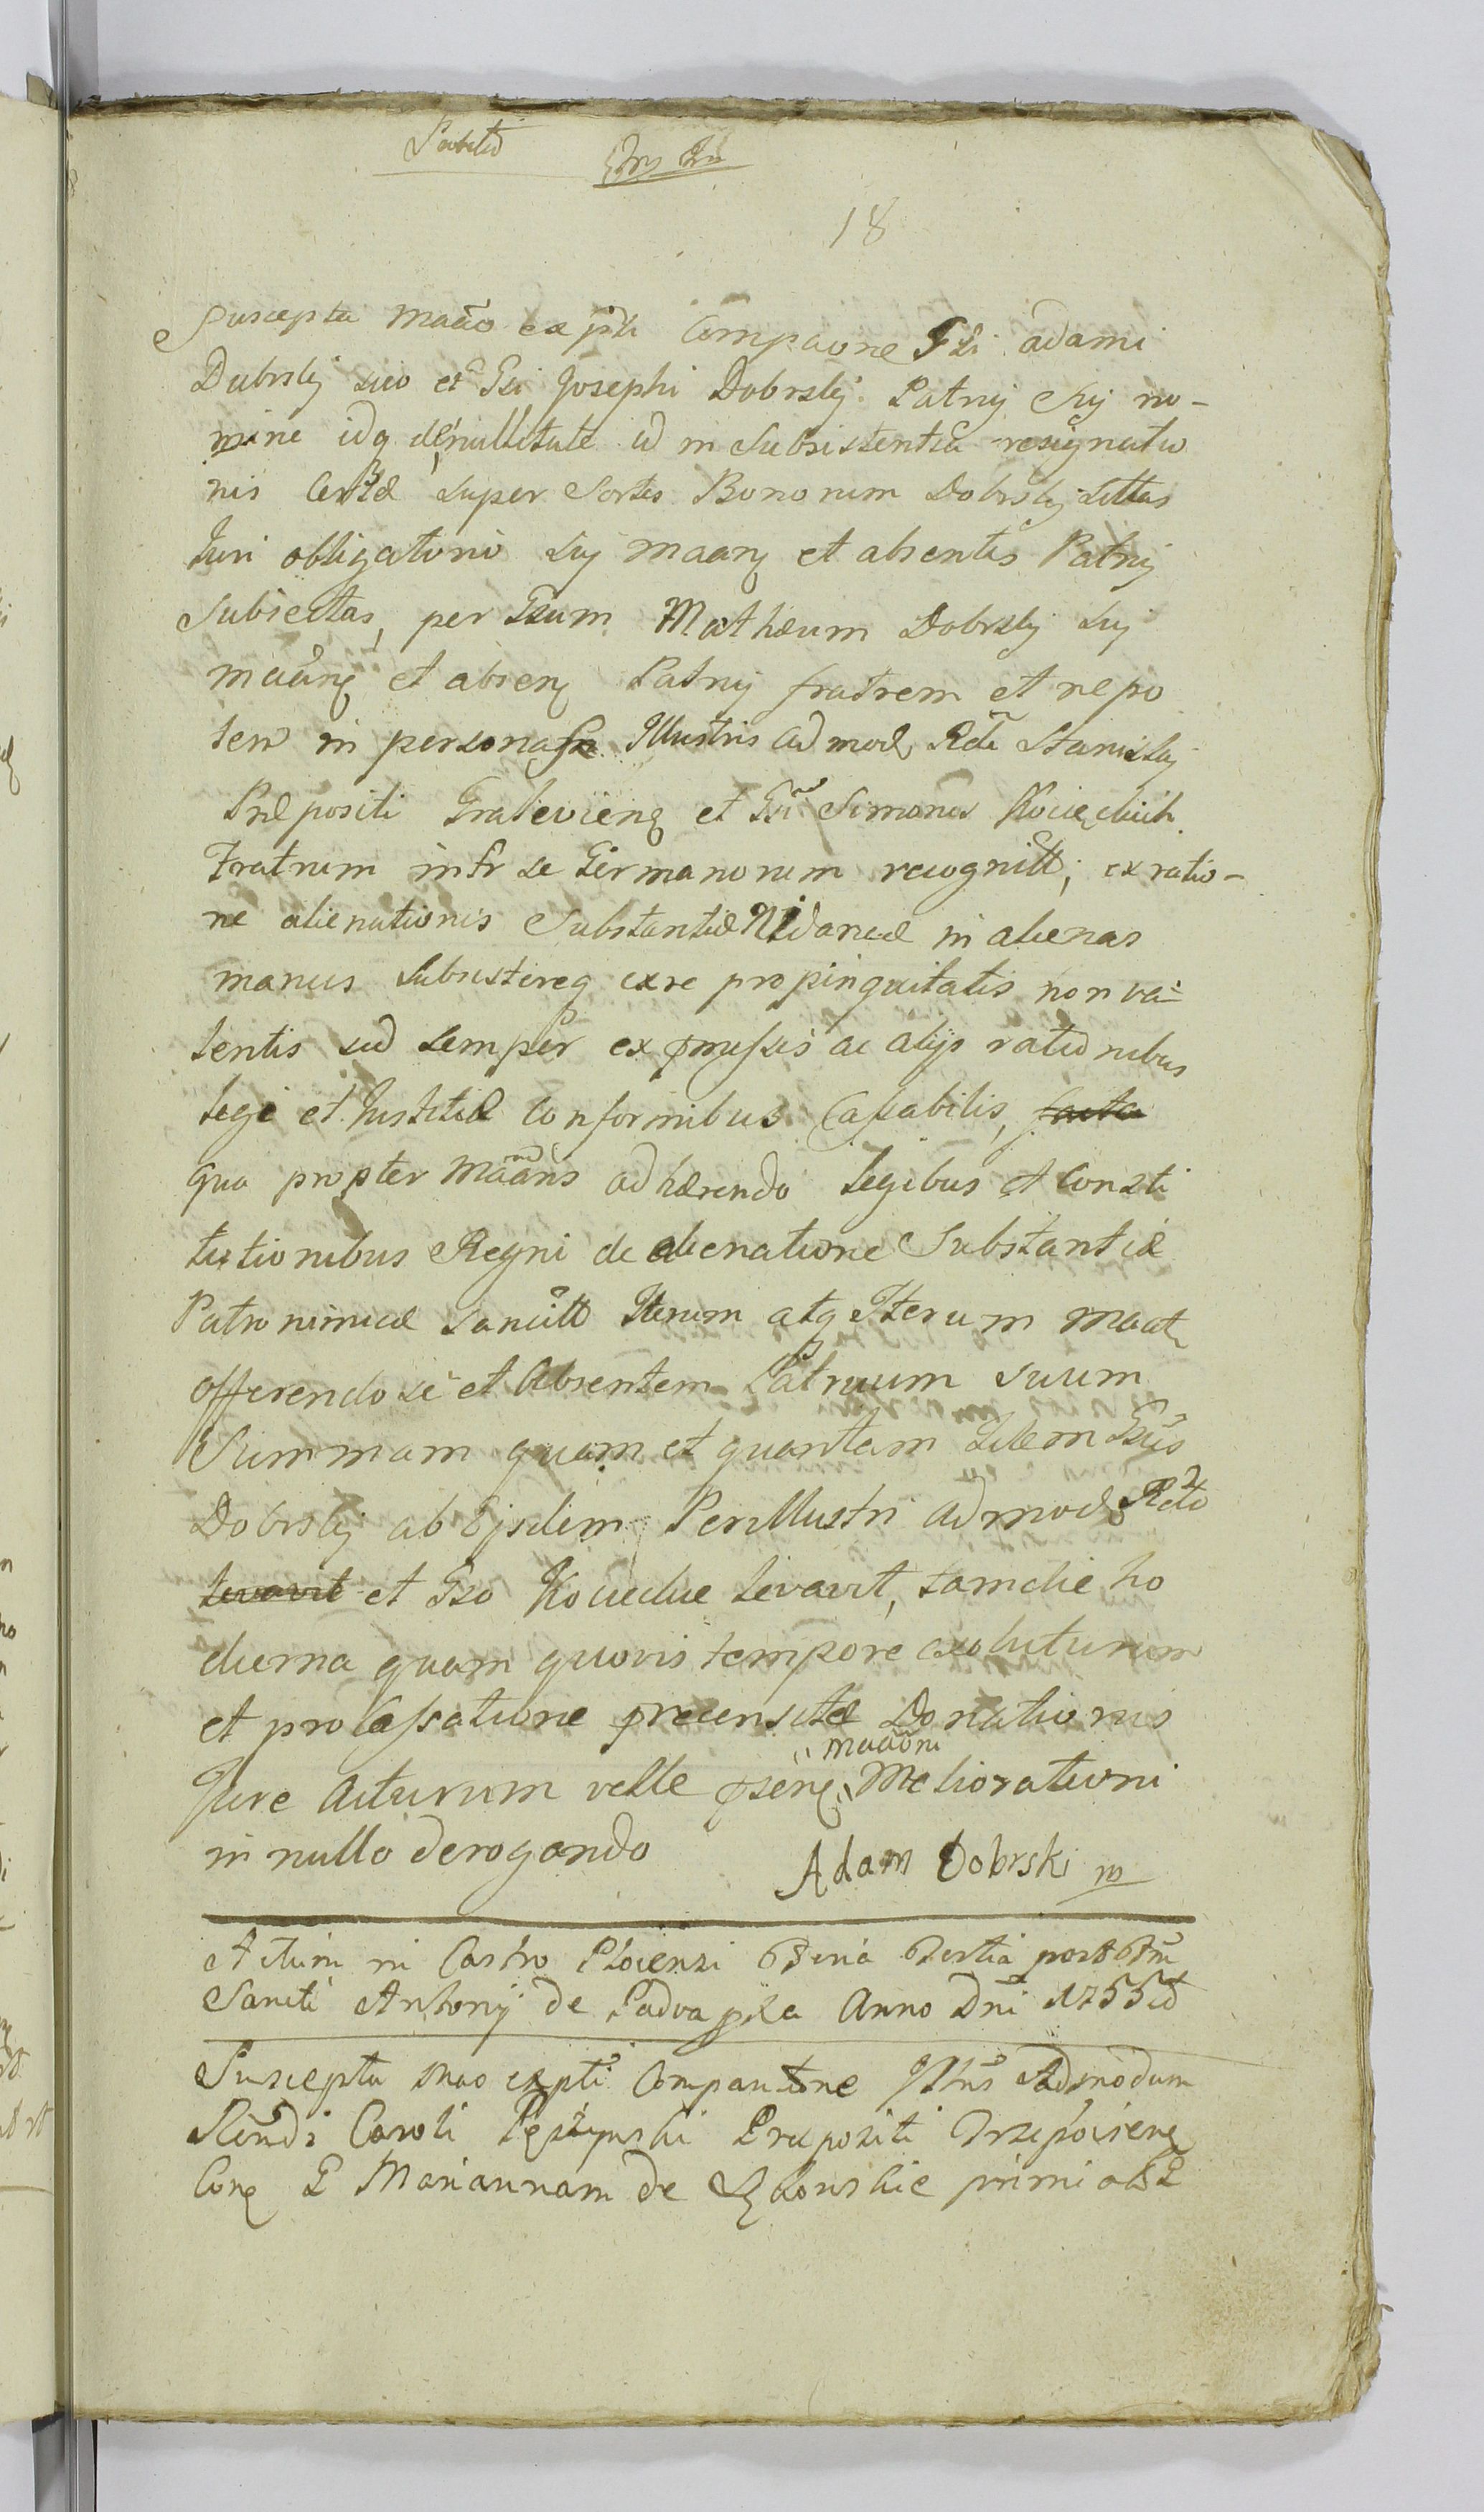 18
Suscepta Maão ex pñti Comparõne Gsi adami
Dobrskj suo et Gsi Josephi Dobrskj Patruj suj no-
mine idq de nullitate ac in Subsistentia resignatio
nis Certæ super Sortes Bonorum Dobrskj sittas
Juri obligatorio suj maanę et absentis Patruj
Subiectas, per Gsum Mathæum Dobrskj suj
maãnę et absenę Patruj fratrem et nepo
tem in personas Illustris admod Rdi Stanislaj
Præpositi Gralevienę et Gsi Simonis Kociełckich
Fratrum intr se Germanorum recognitt; ex ratio-
ne alienationis Substantiæ in alienas
manus subsistereq ex re propinquitatis non va-
lentis sed semper expressis ac alijs rationibus
legi et Justitiæ Conformibus Cassabilis, facta
qua propter Maãns adhærendo legibus et Consti
tutionibus Regni de alienatione Substantiæ
Patronimicæ sancitt Iterum atq Iterum Maat
offerendo se et Absentem Patruum suum
Summam quam et quantam idem Gsus
Dobrskj ab Ejsdem Perillustri admod Rdo
levavit et Gso levavit, tam die ho
dierna quam quovis tempore exoluturum
et pro Cassatione precensitæ Donationis
maaõni
Jure Acturum velle psenę Meliorationi
in nullo derogando
Adam Dobrski m
Actum in Castro Plocensi Feria Tertia post Ftm
Sancti Antonij de Padva pxa Anno Dni 1755to
Suscepta mao expti Comparitione Jllris Admodum
Rendi Caroli Præpositi
Conę G Mariannam de primi